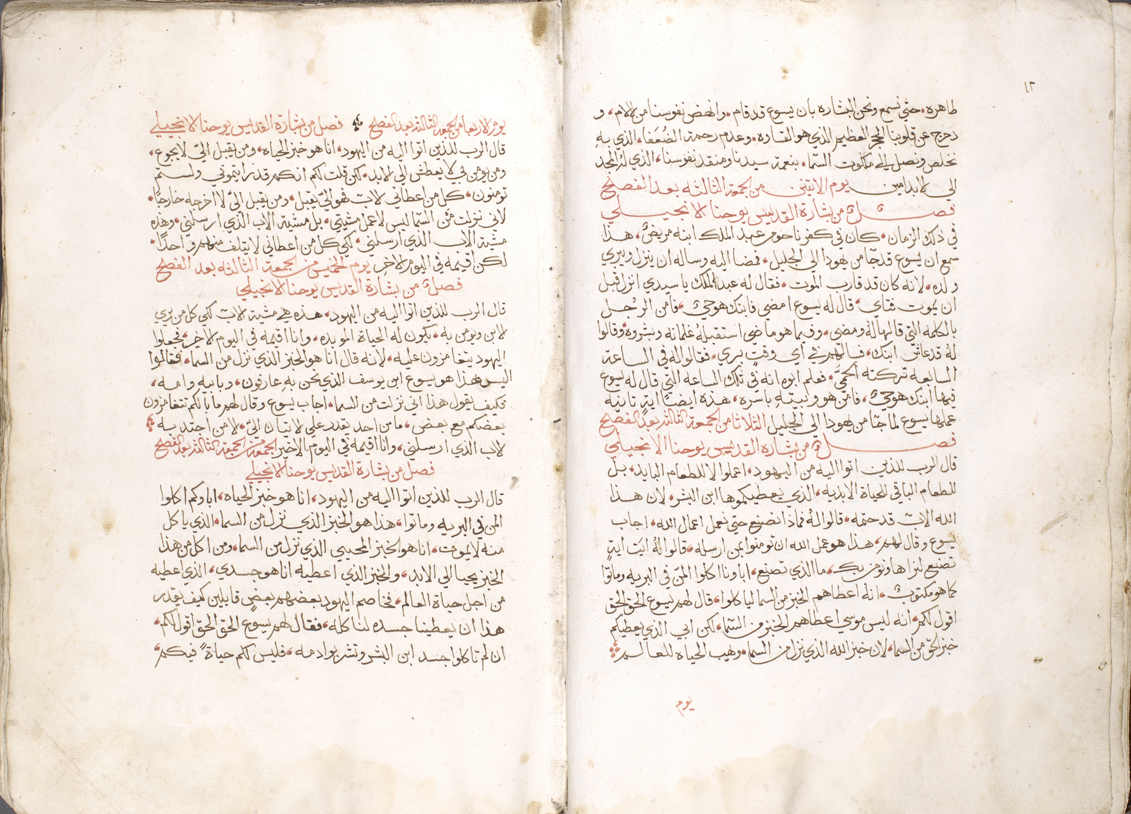 ١٢
طاهرة، حتى نسمع ونحن البشارة بان يسوع قد قام، وانهض نفوسنا من الالام، و
دحرج عن قلوبنا الحجر العظيم الذي هو القساوه، وعدم رحمة الضعفا، الذي به
نخلص ونصل الى ملكوت السما، بنعمة سيدنا ومنقد نفوسنا، الذي له المجد
الى الابد امين يوم الاثنين من الجمعة الثالثه بعد الفصح
فصل من بشارة القديس يوحنا الانجيلي
في ذلك الزمان، كان في كفرناحوم عبد الملك ابنه مريض، هذا
سمع ان يسوع قد جا من يهودا الى الجليل، فمضا اليه وساله ان ينزل ويبري
ولده، لانه كان قد قارب الموت، فقال له عبد الملك يا سيدي انزل قبل
ان يموت فتاي، قال له يسوع امضى فابنك هو حي، فآمن الرجل
بالكلمه التي قالها له ومضى، وفيما هو ماضي استقبله غلمانه وبشروه وقالوا
له قد عاش ابنك، فسالهم في أي وقت بري، فقالوا له في الساعة
السابعه تركته الحمى، فعلم ابوه انه في تلك الساعه التي قال له يسوع
فيها ابنك هو حي، فآمن هو وبيته باسره، هذه ايضا اية ثانيه
عملها يسوع لما جا من يهودا الى الجليل الثلاثا من الجمعة الثالثه بعد الفصح
فصل من بشارة القديس يوحنا الانجيلي
قال الرب للذين اتوا اليه من اليهود، اعملوا لا للطعام البايد، بل
للطعام الباقي للحياة الابديه، الذي يعطيكموها ابن البشر، لان هذا
الله الاب قد ختمه، قالوا له فماذا نصنع حتى نعمل اعمال الله، اجاب
يسوع وقال لهم، هذا هو عمل الله ان تومنوا بمن ارسله، قالوا له ايت اية
تصنع لنراها ونومن بك، ما الذي تصنع، ابا ونا اكلوا المن في البريه وماتوا
كما هو مكتوب، انه اعطاهم الخبز من السما لياكلوا، قال لهم يسوع الحق الحق
اقول لكم، انه ليس موسى اعطاهم الخبز من السما، لكن ابي الذي يعطيكم
خبز الحق من السما، لان خبز الله الذي نزل من السما، وهب الحياه للعالم
يوم
يوم الاربعا من الجمعة الثالثه بعد الفصح فصل من بشارة القديس يوحنا الانجيلي
قال الرب للذين اتوا اليه من اليهود، انا هو خبز الحياه، ومن يقبل الى لا يجوع،
ومن يومن بي لا يعطش الى الابد، لكن قلت لكم انكم قد رايتموني ولستم
تومنون، كل من اعطاني الاب فهو الى يقبل، ومن يقبل الى لا اخرجه خارجا،
لاني نزلت من السما ليس لاعمل مشيتي، بل مشية الاب الذي ارسلني، وهذه
مشية الاب الذي ارسلني، لكي كل من اعطاني لا يتلف منهم واحدا،
لكن اقيمه في اليوم الاخر يوم الخميس من الجمعة الثالثه بعد الفصح
فصل من بشارة القديس يوحنا الانجيلي
قال الرب للذين اتوا اليه من اليهود، هذه هي مشية الاب، لكي كل من يري
الابن ويومن به، يكون له الحياة الموبده، وانا اقيمه في اليوم الاخر، فجعلوا
اليهود يتغامزون عليه، لانه قال انا هو الخبز الذي نزل من السما، فقالوا
اليس هذا هو يسوع ابن يوسف الذي نحن به عارفون، وبابيه وامه،
فكيف يقول هذا اني نزلت من السما، اجاب يسوع وقال لهم ما بالكم تتغامزون
بعضكم مع بعض، ما من احد يقدر على الاتيان الى، الا من اجتدبه
الاب الذي ارسلني، وانا اقيمه في اليوم الاخير الجمعة من الجمعة الثالثه بعد الفصح
فصل من بشارة القديس يوحنا الانجيلي
قال الرب للذين اتوا اليه من اليهود، انا هو خبز الحياه، اباوكم اكلوا
المن في البريه وماتوا، هذا هو الخبز الذي نزل من السما، الذي ياكل
منه لا يموت، انا هو الخبز المحيي الذي نزل من السما، ومن اكل من هذا
الخبز يحيا الى الابد، والخبز الذي اعطيه انا هو جسدي، الذي اعطيه
من اجل حياة العالم، فخاصم اليهود بعضهم بعض قايلين كيف يقدر
هذا ان يعطينا جسده لناكله، فقال لهم يسوع الحق الحق اقول لكم،
ان لم تاكلوا جسد ابن البشر وتشربوا دمه، فليس لكم حياة فيكم،